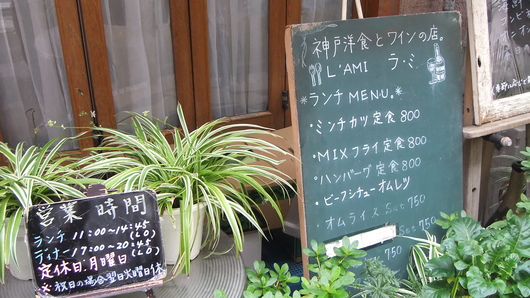 神戸洋食とワインの店。
L'AMI ラ・ミ
*ランチMENU。*
・ミンチカツ定食 800
・MIXフライ定食 800
・ハンバーグ定食 800
・ビーフシチューオムレツ
オムライス Set 750
Set 750
750
営業時間
ランチ 11:00~14:45 (L.O)
ディナー 17:00~20:45 (L.O)
定休日:月曜日
※祝日の場合翌日火曜日休